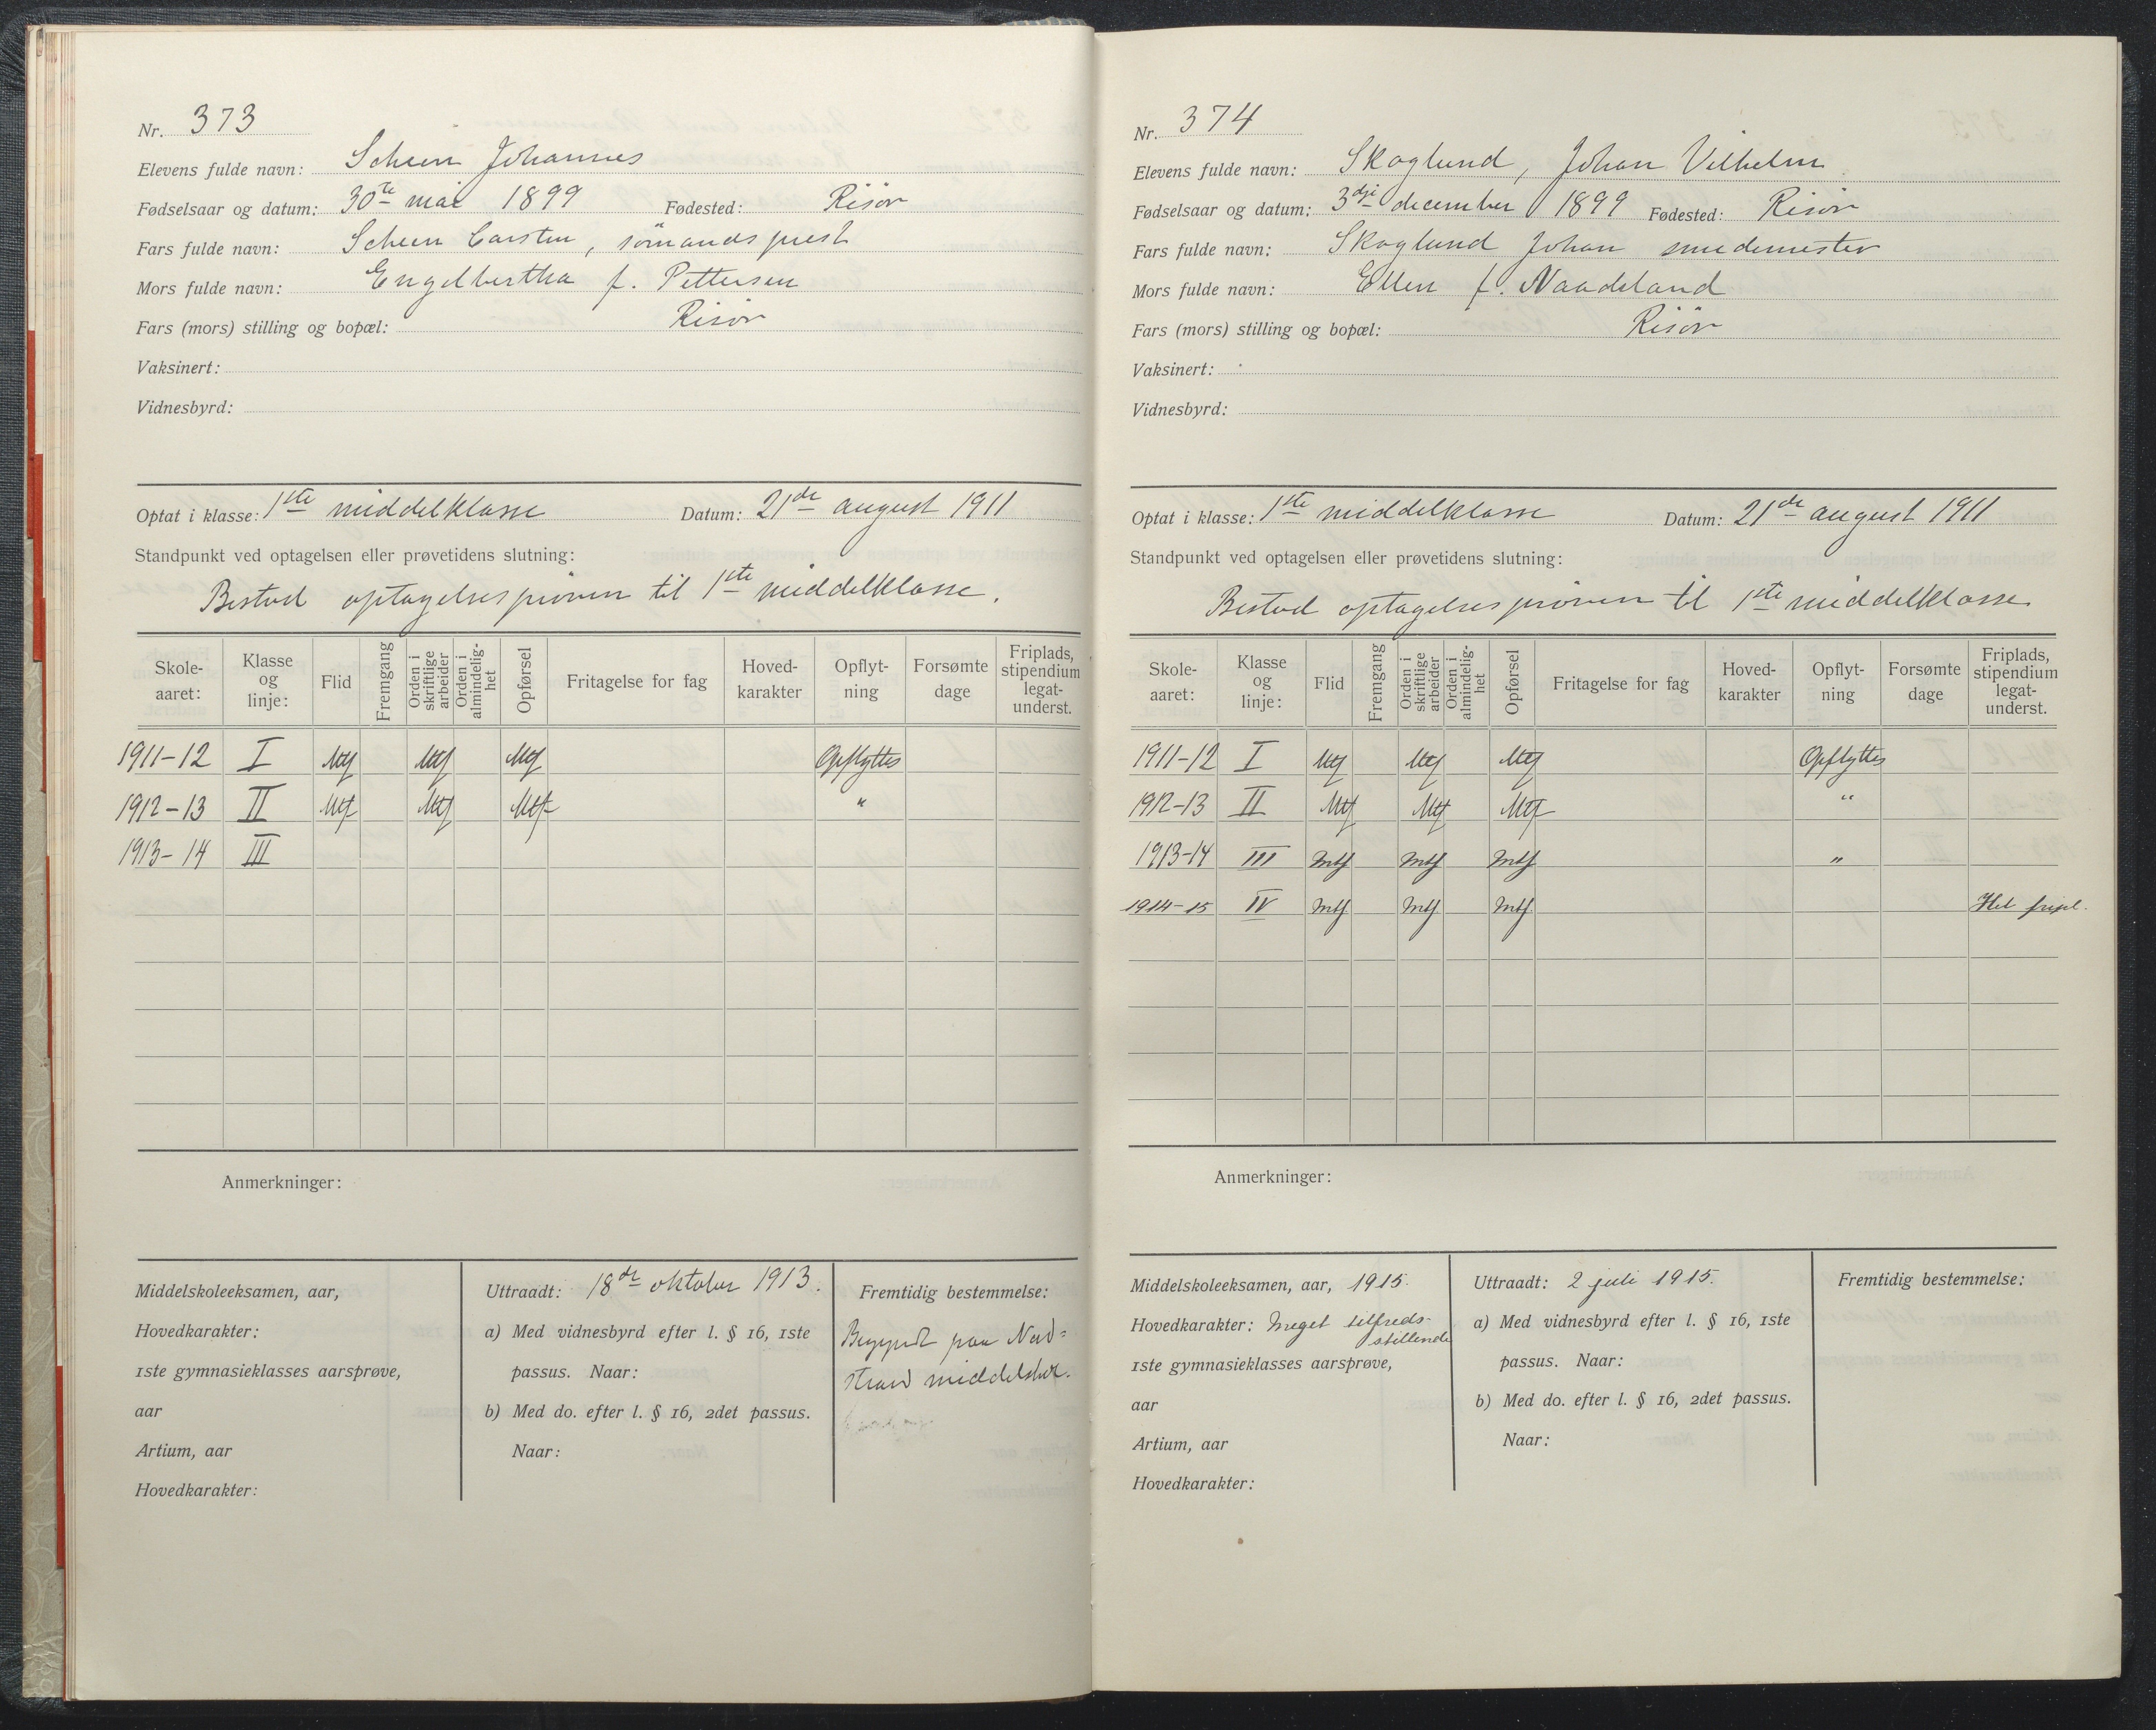 Nr. 373
Elevens fulde navn: Scheen Johannes
Fødselsaar og datum: 30te mai 1899 Fødested: Risör
Fars fulde navn: Scheen Carsten, sömandsprest
Mors fulde navn: Engelbertha f. Pettersen
Fars (mors) stilling og bopæl: Risör
Vaksinert:
Vidnesbyrd:
Optat i klasse: 1ste middelklasse Datum: 21de august 1911
Standpunkt ved optagelsen eller prøvetidens slutning:
Bestod optagelsespröven til 1ste middelklasse.
Skole-aaret: Klasse og linje: Flid Fremgang Orden i skriftlige arbeider Orden i almindelig-het Opførsel Fritagelse for fag Hoved-karakter Opflyt-ning Forsømte dage Friplads, stipendium legat-underst.
1911-12 I Mtf Mtf Mtf Opflyttes
1912-13 II Mtf Mtf Mtf "
1913-14 III
Anmerkninger:
Middelskoleeksamen, aar,
Hovedkarakter:
1ste gymnasieklasses aarsprøve,
aar
Artium, aar
Hovedkarakter:
Uttraadt: 18de oktober 1913.
a) Med vidnesbyrd efter l. § 16, 1ste
passus. Naar:
b) Med do. efter l. § 16, 2det passus.
Naar:
Fremtidig bestemmelse:
paa Nord=
strand middelskol.
Nr. 374
Elevens fulde navn: Skoglund, Johan Vilhelm
Fødselsaar og datum: 3dje december 1899 Fødested: Risör
Fars fulde navn: Skoglund Johan smedemester
Mors fulde navn: Ellen f. Naadeland
Fars (mors) stilling og bopæl: Risör
Vaksinert:
Vidnesbyrd:
Optat i klasse: 1ste middelklasse Datum: 21de august 1911
Standpunkt ved optagelsen eller prøvetidens slutning:
Bestod optagelsespröven til 1ste middelklasse
Skole-aaret: Klasse og linje: Flid Fremgang Orden i skriftlige arbeider Orden i almindelig-het Opførsel Fritagelse for fag Hoved-karakter Opflyt-ning Forsømte dage Friplads, stipendium legat-underst.
1911-12 I Mtf Mtf Mtf Opflyttes
1912-13 II Mtf Mtf Mtf "
1913-14 III Mtf Mtf Mtf "
1914-15 IV Mtf Mtf Mtf Hel fripl.
Anmerkninger:
Middelskoleeksamen, aar, 1915.
Hovedkarakter: Meget tilfreds-
stillende
1ste gymnasieklasses aarsprøve,
aar
Artium, aar
Hovedkarakter:
Uttraadt: 2 juli 1915.
a) Med vidnesbyrd efter l. § 16, 1ste
passus. Naar:
b) Med do. efter l. § 16, 2det passus.
Naar:
Fremtidig bestemmelse: